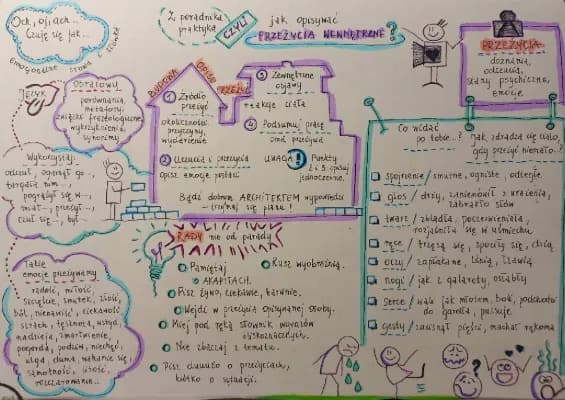 Och, oj, ach...
Czuję się jak...
emocjonalne słowa i zdania
JĘZYK
Obrazowy
porównania,
metafory,
związki frazeologiczne,
wykrzyknienia,
synonimy
Wykorzystaj:
odczuł, ogarnął go...
targała nim...
pogrążył się w...
miał... przeżyć...
czuł się... był...
Jakie
emocje przeżywamy
radość, miłość,
szczęście, smutek, złość,
ból, nienawiść, ciekawość
strach, tęsknota,
nadzieja, zmartwienie,
pogarda, podziw, niechęć
ulga, duma, wahanie się,
samotność, litość,
rozczarowanie...
Z poradnika
praktyka
CZYLI
jak opisywać
PRZEŻYCIA WEWNĘTRZNE?
BUDOWA
OPISU
PRZEŻYĆ
1 Źródło
przeżyć
okoliczności
przyczyny,
wydarzenie
2 Uczucia i przeżycia
opisz emocje postaci
3 Zewnętrzne
objawy
reakcje ciała
4 Podsumuj pracę
UWAGA!
Punkty
2 i 3 opisuj
jednocześnie.
Bądź dobrym ARCHITEKTEM wypowiedzi
trzymaj się planu!
RADY nie od parady
Pamiętaj
o AKAPITACH.
Rusz wyobraźnią.
Pisz żywo, ciekawie, barwnie.
Wejdź w przeżycia opisywanej osoby.
Miej pod ręką słownik wyrazów
bliskoznacznych.
Nie zbaczaj z tematu.
Pisz dużo o przeżyciach,
krótko o sytuacji.
PRZEŻYCIA
doznania,
odczucia,
stany psychiczne,
emocje
Co widać
po tobie..?
Jak zdradza cię ciało,
gdy przeżył niemało..?
spojrzenie / smutne, ogniste, odległe
głos / drży, zaniemówił z wrażenia,
zabrakło słów
twarz / zbladła, poczerwieniała,
rozjaśniła w uśmiechu
ręce / trzęsą się, spociły się, drżą
oczy / zapłakane, lśnią, łzawią
nogi / jak z galarety, osłabły
serce / wali jak młotem, boli, podchodzi
do gardła, pulsuje
gesty / zacisnął pięści, machał rękoma